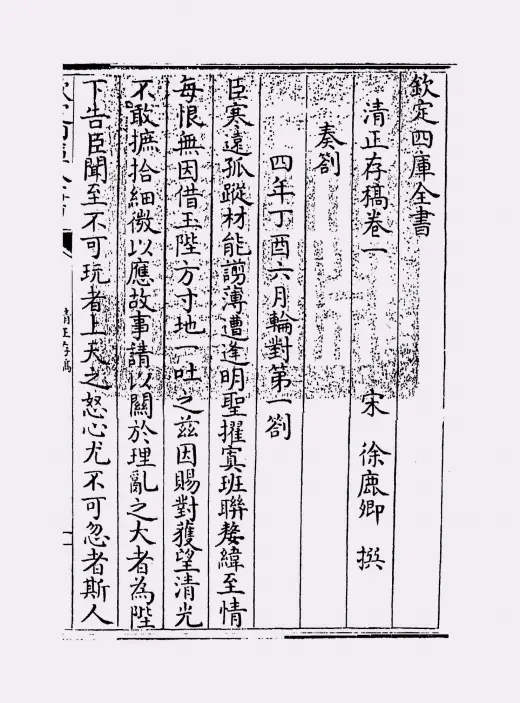 欽定四庫全書
清正存稿卷一
宋 徐鹿卿 撰
奏劄
四年丁酉六月輪對第一劄
臣寒遠孤蹤材能謭薄遭逢明聖擢寘班聯嫠緯至情
每恨無因借玉陛方寸地一吐之兹因賜對獲望清光
不敢摭拾細微以應故事請以關於理亂之大者為陛
下告臣聞至不可玩者上天之怒心尤不可忽者斯人
清正存稿